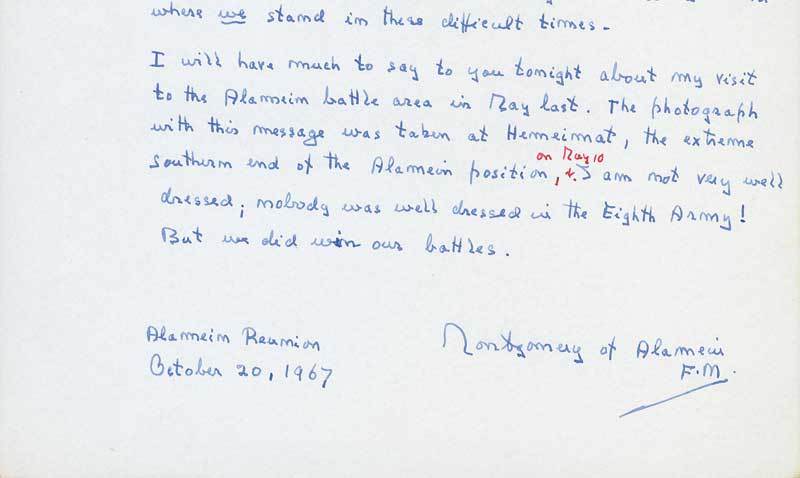 where we stand in these difficult times.
I will have much to say to you tonight about my visit
to the Alamein battle area in May last. The photograph
with this message was taken at Hemeimat, the extreme
on May 10
southern end of the Alamein position, &. I am not very well
dressed; nobody was well dressed in the Eighth Army!
But we did win our battles.
Alamein Reunion
October 20, 1967
Montgomery of Alamein
F.M.